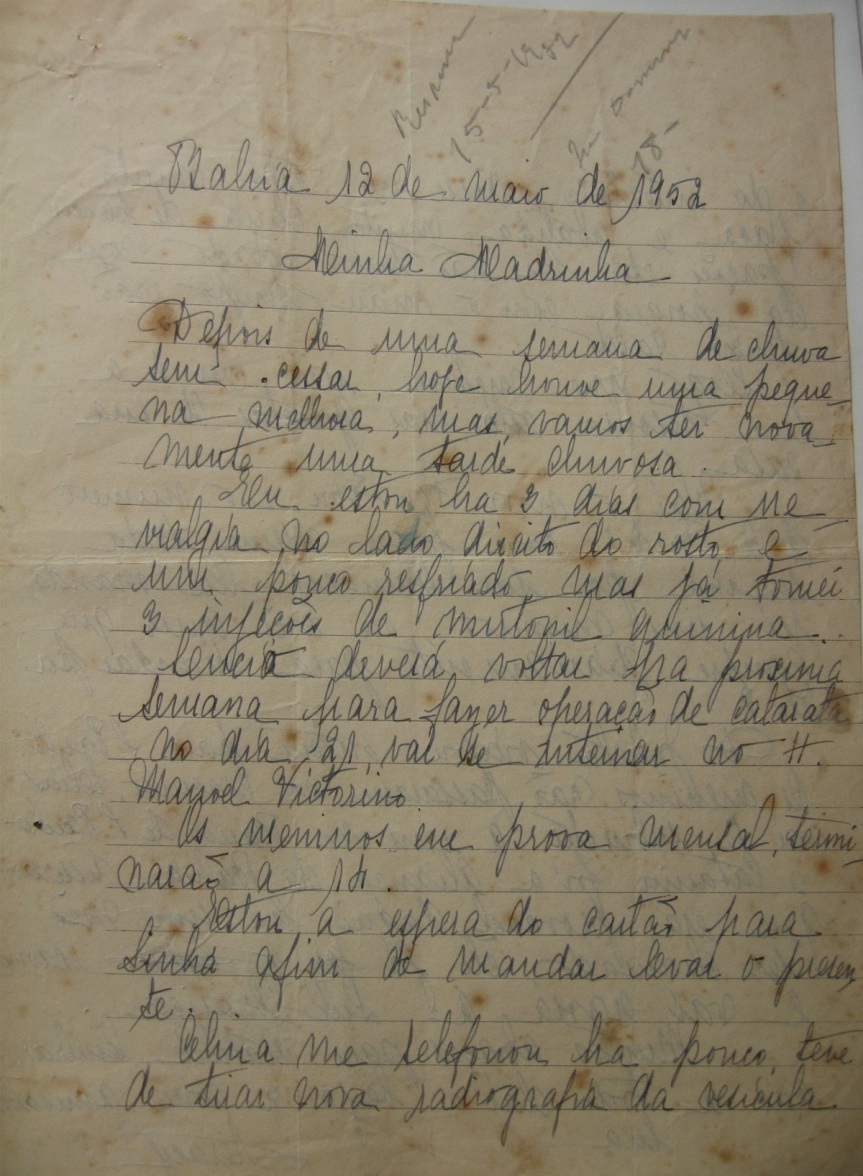 15-5-1952
18-
Bahia 12 de maio de 1952
Minha Madrinha
Depois de uma semana de chuva
sem cessar, hoje houve uma peque-
na melhora, mas, vamos ter nova-
mente uma tarde chuvosa.
Eu estou ha 3 dias com ne-
vralgia no lado direito do rosto, e
um pouco resfriado, mas já tomei
3 injeções de quinina.
deverá voltar na proxima
semana para fazer operação de catarata
no dia 21, vai se internar no H.
Manoel Victorino
Os meninos em prova mensal, termi-
narão a 14.
Estou a espera do cartão para
Sinhá afim de mandar levar o presen-
te.
Celina me telefonou ha pouco, teve
de tirar nova radiografia da vesicula